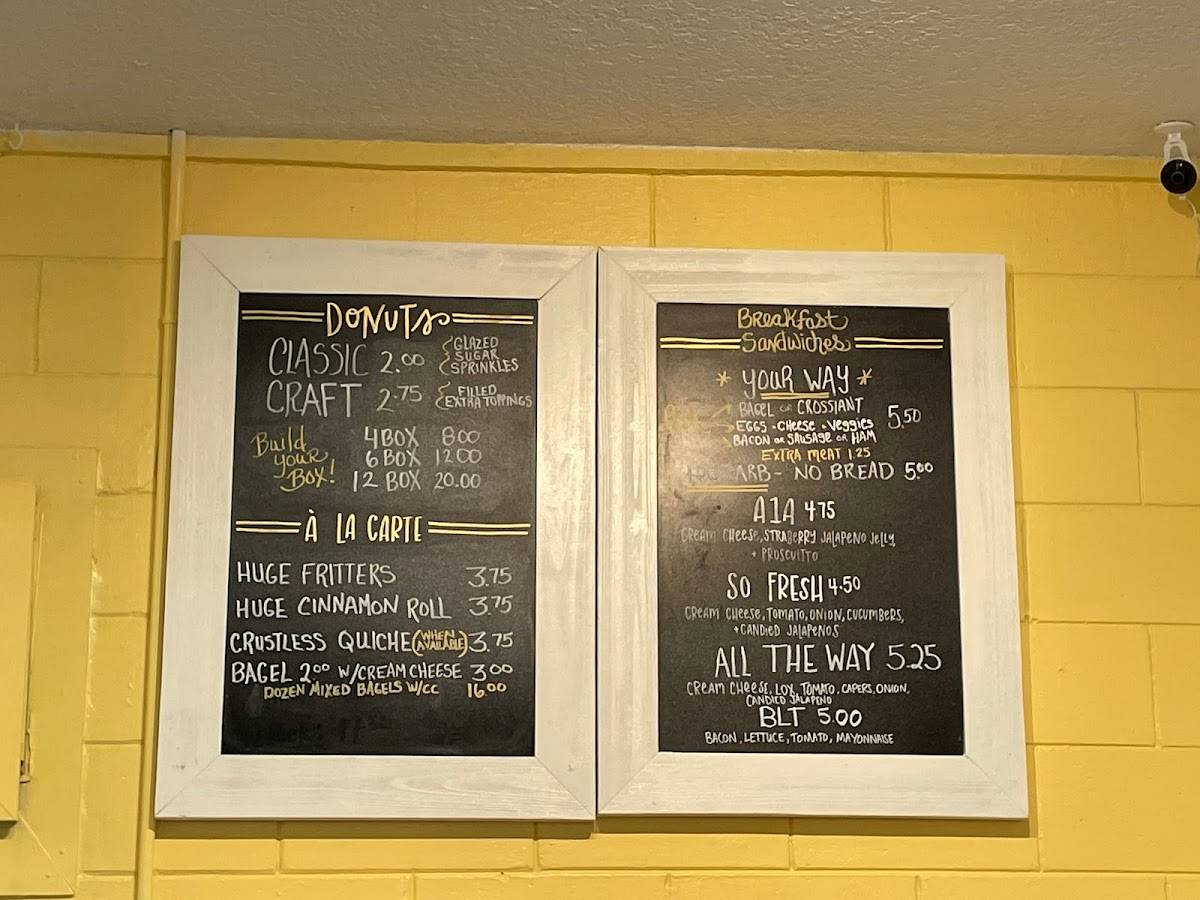 DONUTS
CLASSIC 2.00 {GLAZED
SUGAR
SPRINKLES
CRAFT 2.75 {FILLED
EXTRA TOPPINGS
Build
your
Box!
4 BOX 8.00
6 BOX 12.00
12 BOX 20.00
À LA CARTE
HUGE FRITTERS 3.75
HUGE CINNAMON ROLL 3.75
CRUSTLESS QUICHE (WHEN AVAILABLE) 3.75
BAGEL 2.00 W/CREAM CHEESE 3.00
DOZEN MIXED BAGELS W/CC 16.00
Breakfast
Sandwiches
* YOUR WAY *
BAGEL OR CROSSIANT 5.50
EGGS • CHEESE • VEGGIES
BACON OR SAUSAGE OR HAM
EXTRA MEAT 1.25
CARB - NO BREAD 5.00
A1A 4.75
CREAM CHEESE, STRABERRY JALAPENO JELLY,
+ PROSCUITTO
SO FRESH 4.50
CREAM CHEESE, TOMATO, ONION, CUCUMBERS,
+ CANDIED JALAPENOS
ALL THE WAY 5.25
CREAM CHEESE, LOX, TOMATO, CAPERS, ONION,
CANDIED JALAPENO
BLT 5.00
BACON, LETTUCE, TOMATO, MAYONNAISE